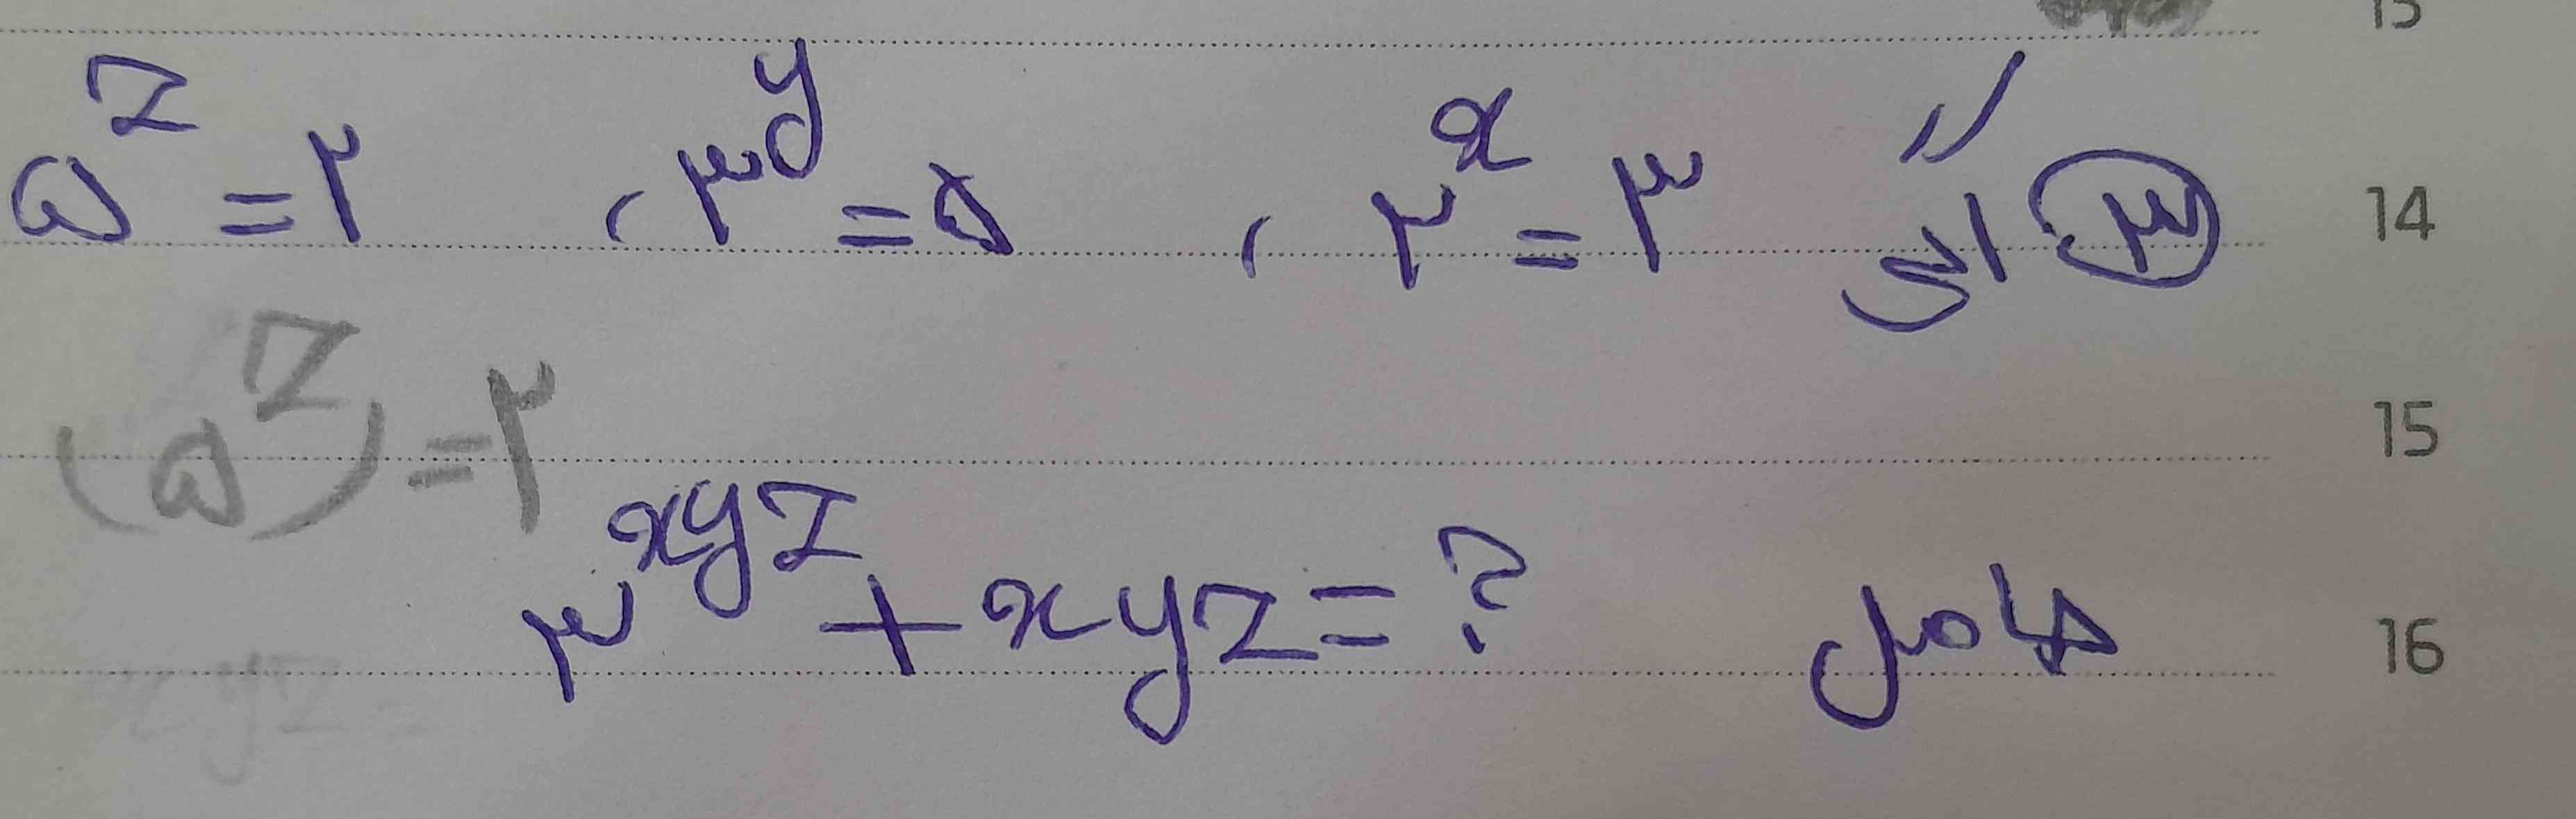 ۳) اگر ۲^x = ۳ ، ۳^y = ۵ ، ۵^z = ۲
14
(۵^z) = ۲
15
حاصل ۳^xyz + xyz = ?
16
xyz